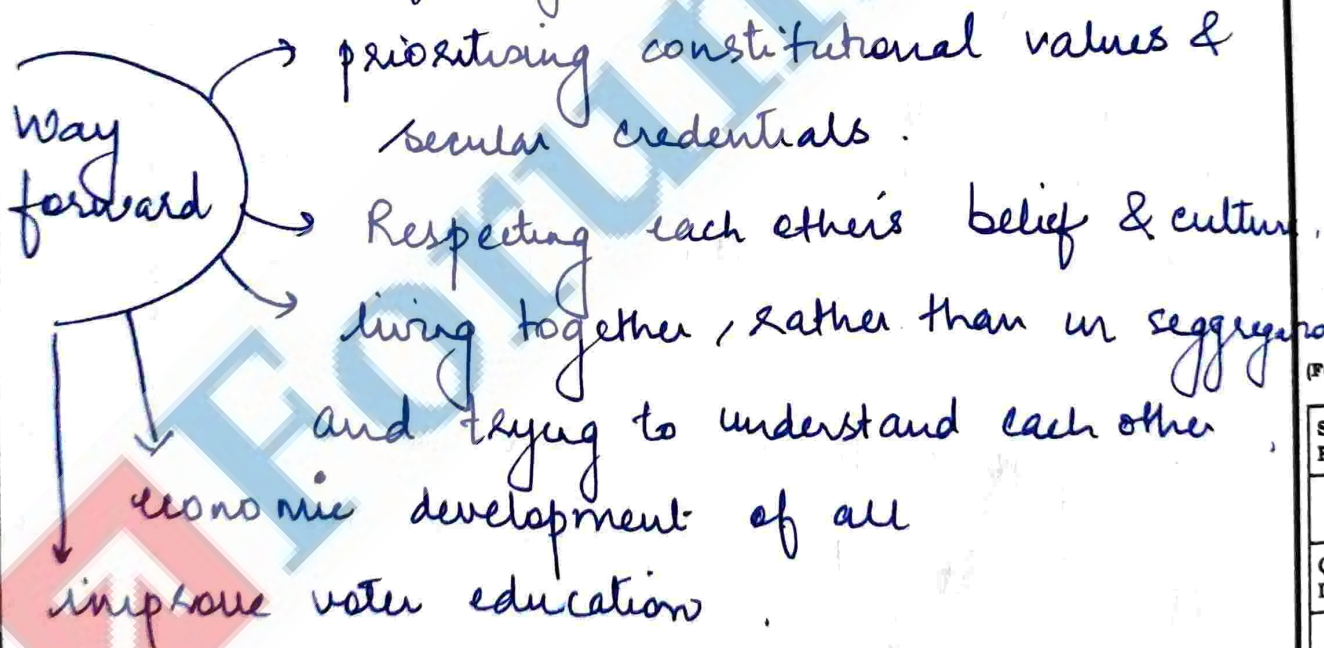 prioritising constitutional values &
secular credentials.
Way
forward
Respecting each other's belief & culture.
living together, rather than in
and trying to understand each other,
economic development of all
improve voter education.
Forum